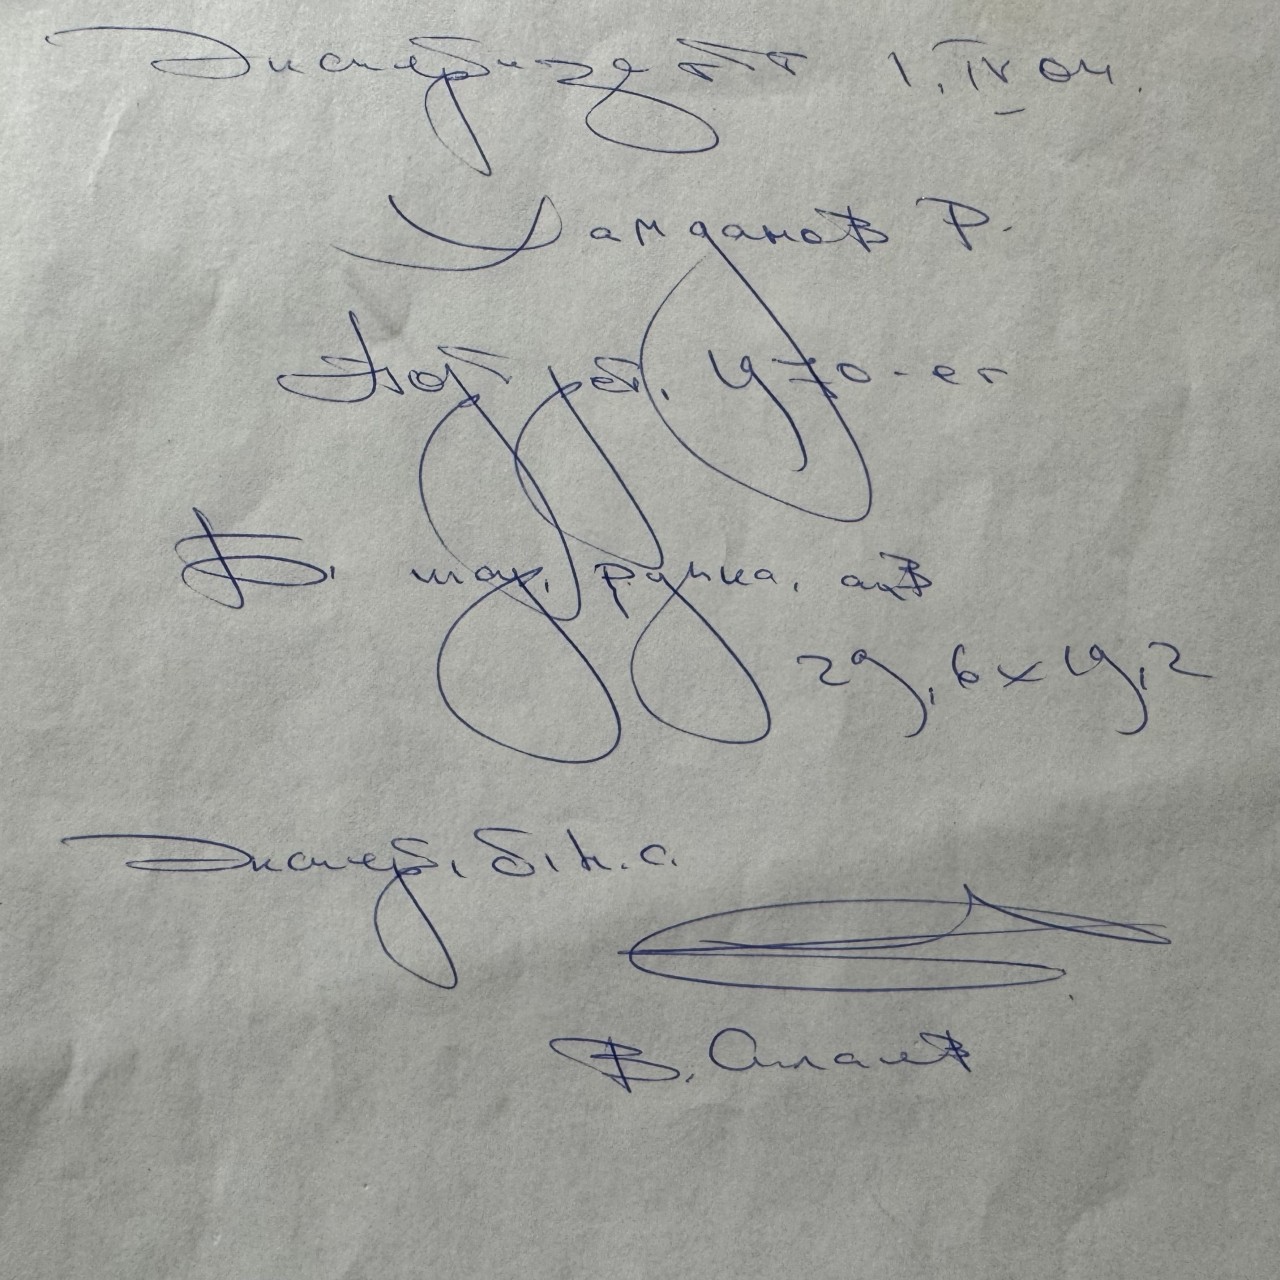 Экспертиза от 1. IV 04.
Хамданов Р.
Портрет, 1970-ег
Б. шар. ручка, акв
29,6 x 19,2
Эксперт, б.н.с.
В. Силаев